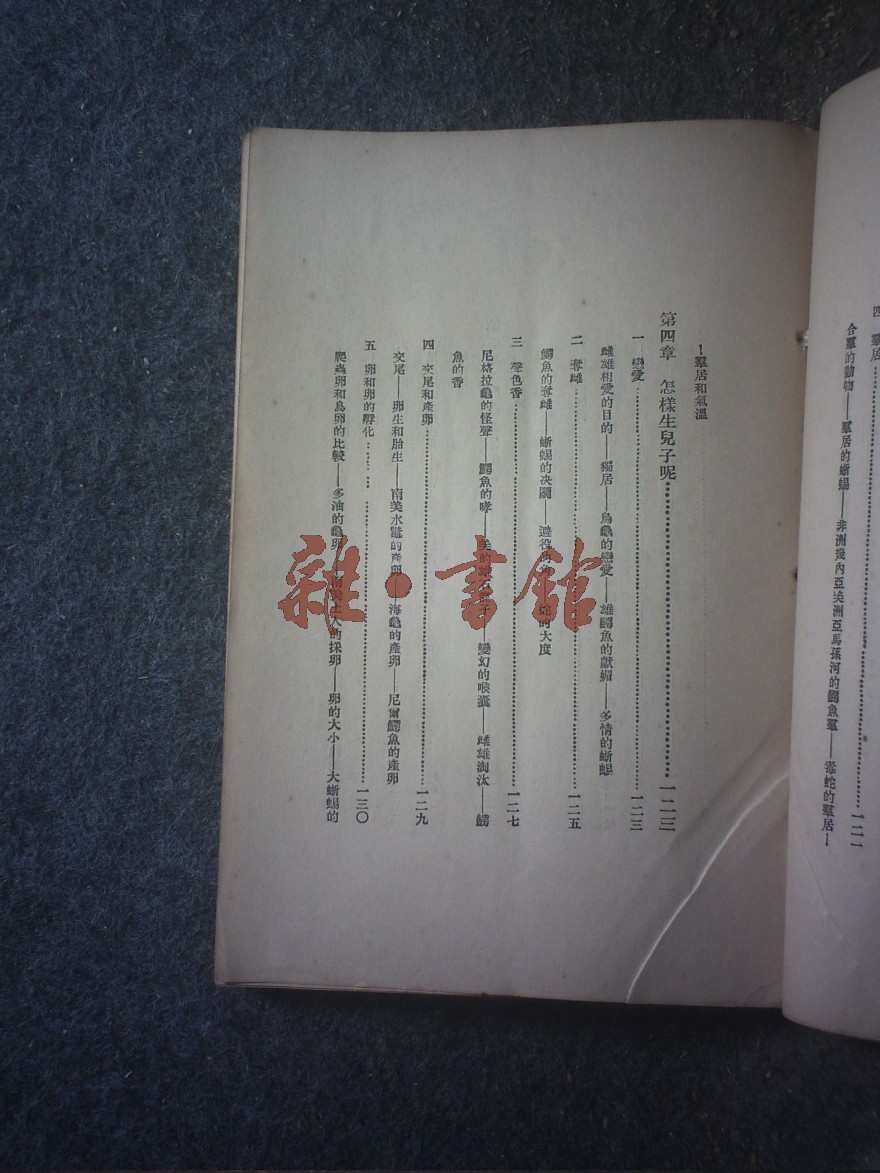 四 羣居……一二一
合羣的動物——羣居的蜥蜴——非洲幾內亞美洲亞馬孫河的鱷魚羣——毒蛇的羣居—
—羣居和氣溫
第四章 怎樣生兒子呢……一二三
一 戀愛……一二三
雌雄相愛的目的——獨居——烏龜的戀愛——雄鱷魚的獻媚——多情的蜥蜴
二 奪雌……一二五
鱷魚的奪雌——蜥蜴的決鬭——避役的角——蛇的大度
三 聲色香……一二七
尼格拉龜的怪聲——鱷魚的哮——美的雄石龍子——變幻的喉囊——雌雄淘汰——鱷
魚的香
四 交尾和產卵……一二九
交尾——卵生和胎生——南美水鼈的產卵——海龜的產卵——尼爾鱷魚的產卵
五 卵和卵的孵化……一三〇
爬蟲卵和鳥卵的比較——多油的龜卵——南美土人的採卵——卵的大小——大蜥蜴的
雜·書館